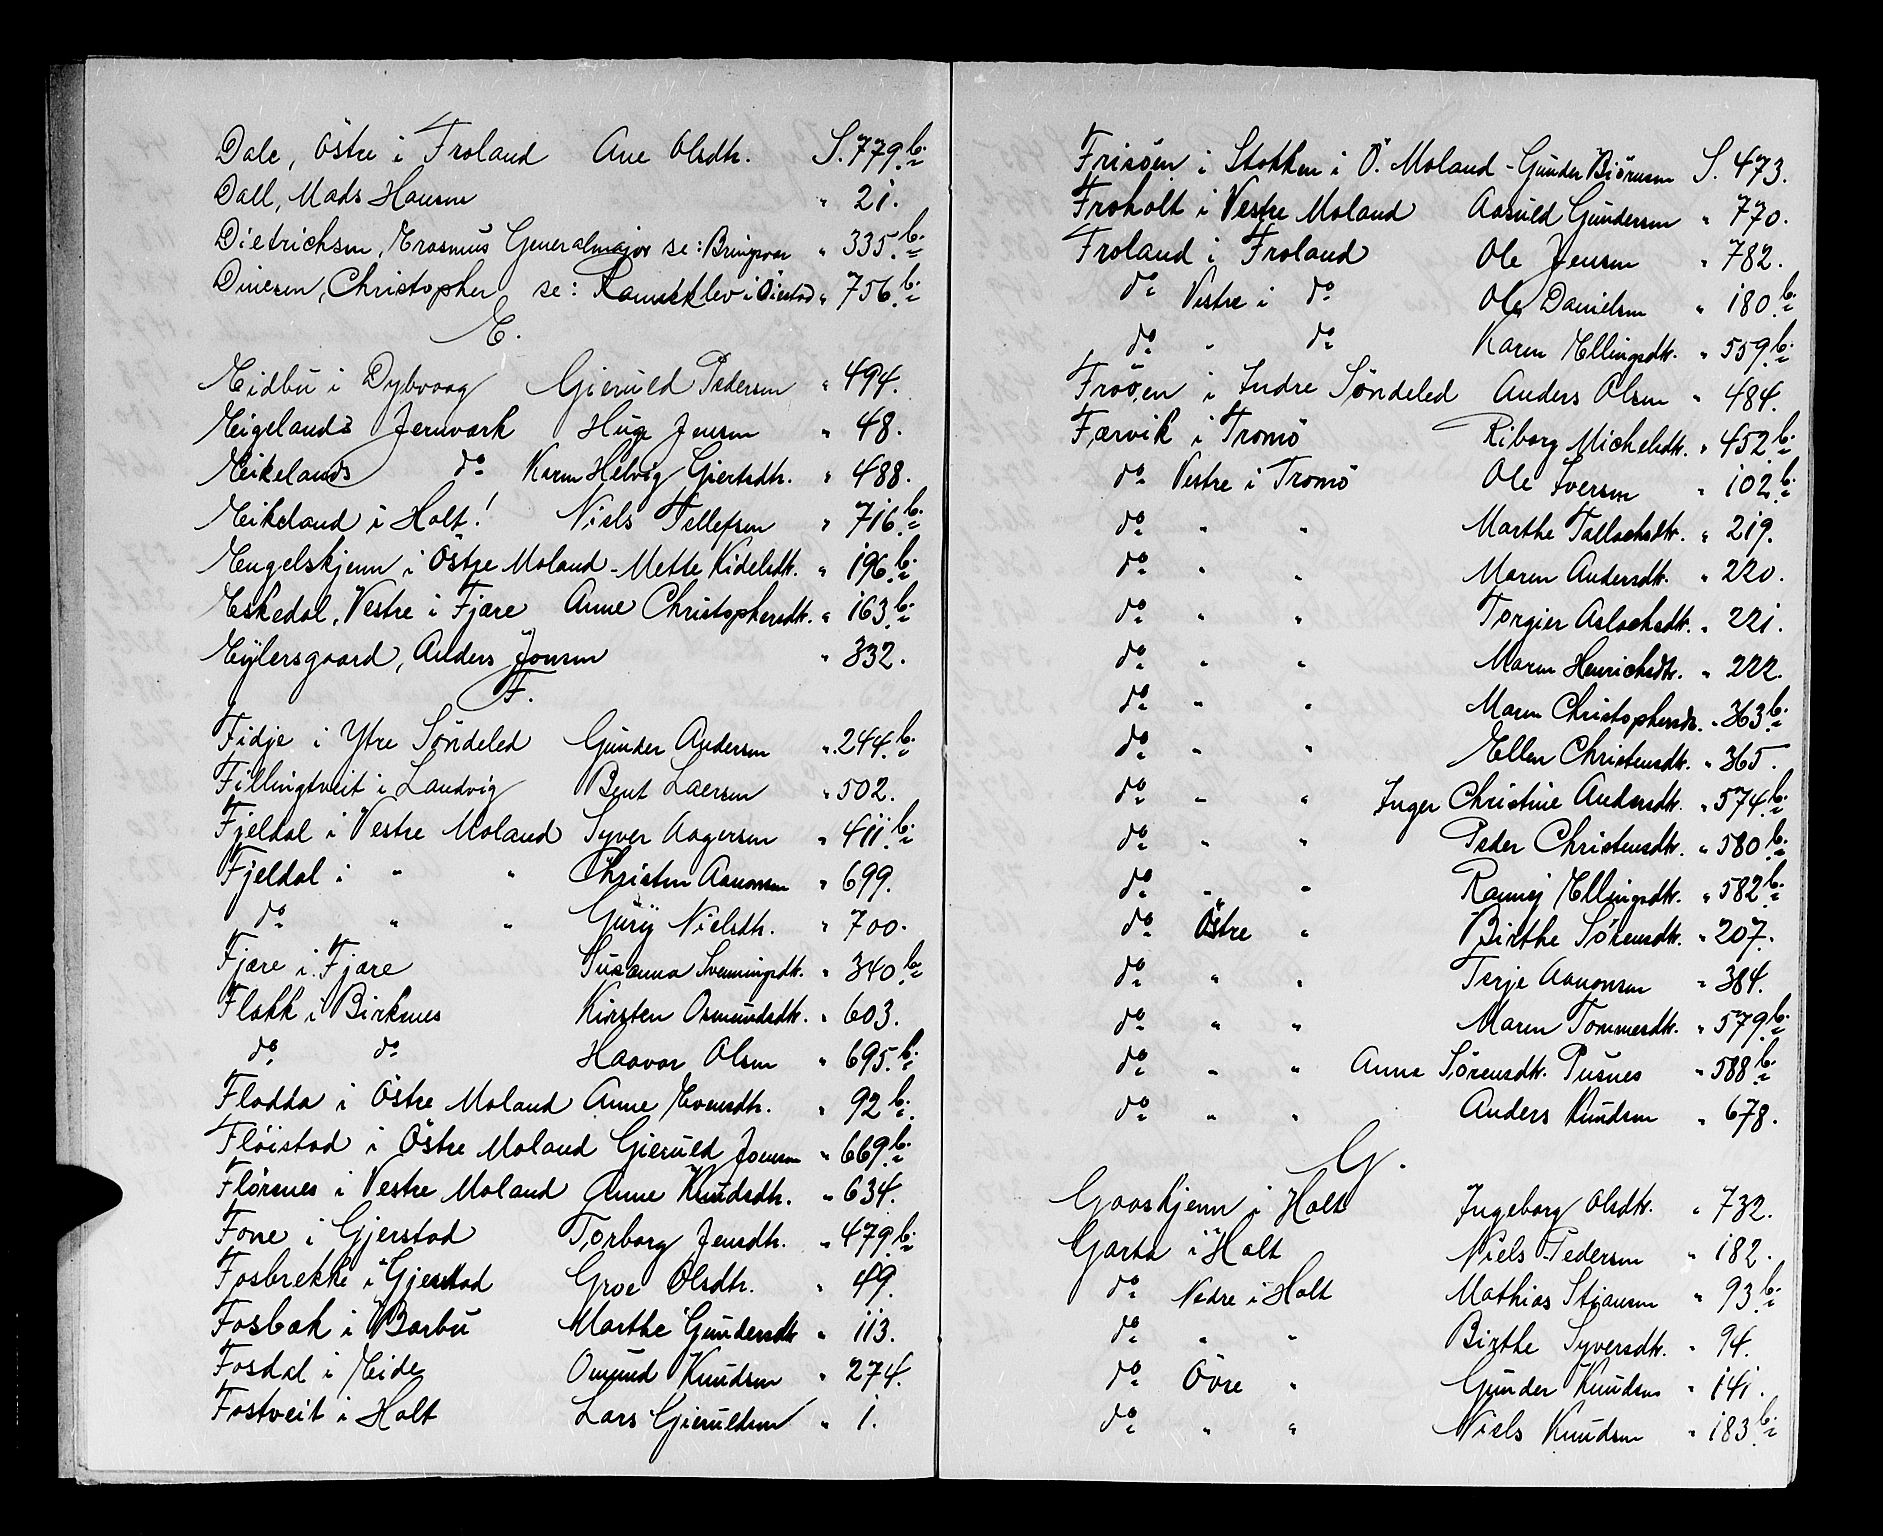 Dale, Östre i Froland Ane Olsdtr. S. 779.b.
Dall, Mads Hansen " 21.
Dietrichsen, Erasmus Generalmajor se: Bringsvær " 335.b.
Dinesen, Christopher se: Ranneklev i Öiestad " 756.b.
E.
Eidbu i Dybvaag Gieruld Pedersen " 494.
Eigelands Jernværk Hugo Jensen " 48.
Eikelands do Karen Helvig Giertsdtr. " 488.
Eikeland i Holt! Niels Tellefsen " 716.b.
Engelskjenn i Östre Moland - Mette Kidelsdtr. " 196.b.
Eskedal, Vestre i Fjære Anne Christophersdtr. " 163.b.
Eylersgaard, Anders Jonsen " 332.
F.
Fidje i Ytre Söndeled Gunder Andersen " 244.b.
Fillingtveit i Landvig Bent Laersen " 502.
Fjeldal i Vestre Moland Syver Aagersen " 411.b.
Fjeldal i " " Christen Aanonsen " 699.
do " " Gurij Nielsdtr. " 700.
Fjære i Fjære Susanna Svenningsdtr. " 340.b.
Flakk i Birknes Kirsten Osmundsdtr. " 603.
do do Haavor Olsen " 695.b.
Fladda i Östre Moland Anne Evensdtr. " 92.b.
Flöistad i Östre Moland Gieruld Jonsen " 669.b.
Flörsnes i Vestre Moland Anne Knudsdtr. " 634.
Fone i Gjerstad Torborg Jensdtr. " 479.b.
Fosbrekke i Gjerstad Groe Olsdtr. " 49.
Fosbæk i Barbu Marthe Gundersdtr " 113.
Fosdal i Eide Omund Knudsen " 274.
Fostveit i Holt Lars Gieruldsen " 1.
Frisöen i Stokken i Ö. Moland - Gunder Biörnsen S. 473.
Froholt i Vestre Moland Aasuld Gundersen " 770.
Froland i Froland Ole Jensen " 782.
do Vestre i do Ole Danielsen " 180.b.
do " do Karen Ellingsdtr. " 559.b.
Fröen i Indre Söndeled Anders Olsen " 484.
Færvik i Tromö Riborg Michelsdtr. " 452.b.
do Vestre i Tromö Ole Iversen " 102.b.
do " " Marthe Tallachsdtr. " 219.
do " " Maren Andersdtr. " 220.
do " " Torgier Aslachsdtr. " 221.
do " " Maren Henrichsdtr. " 222.
do " " Maren Christophersdtr. " 363.b.
do " " Ellen Christensdtr. " 365.
do " " Inger Christine Andersdtr. " 574.b.
do " " Peder Christensdtr. " 580.b.
do " " Rannej Ellingsdtr. " 582.b.
do Östre " Birthe Sörensdtr. " 207.
do " " Terje Aanonsen " 384.
do " " Maren Tommesdtr. " 579.b.
do " " Anne Sörensdtr. Pusnes " 588.b.
do " " Anders Knudsen " 678.
G.
Gaaskjenn i Holt Ingeborg Olsdtr. " 732.
Garta i Holt Niels Pedersen " 182.
do Nedre i Holt Mathias Stiansen " 93.b.
do " " Birthe Syversdtr. " 94.
do Övre " Gunder Knudsen " 141.
do " " Niels Knudsen " 183.b.